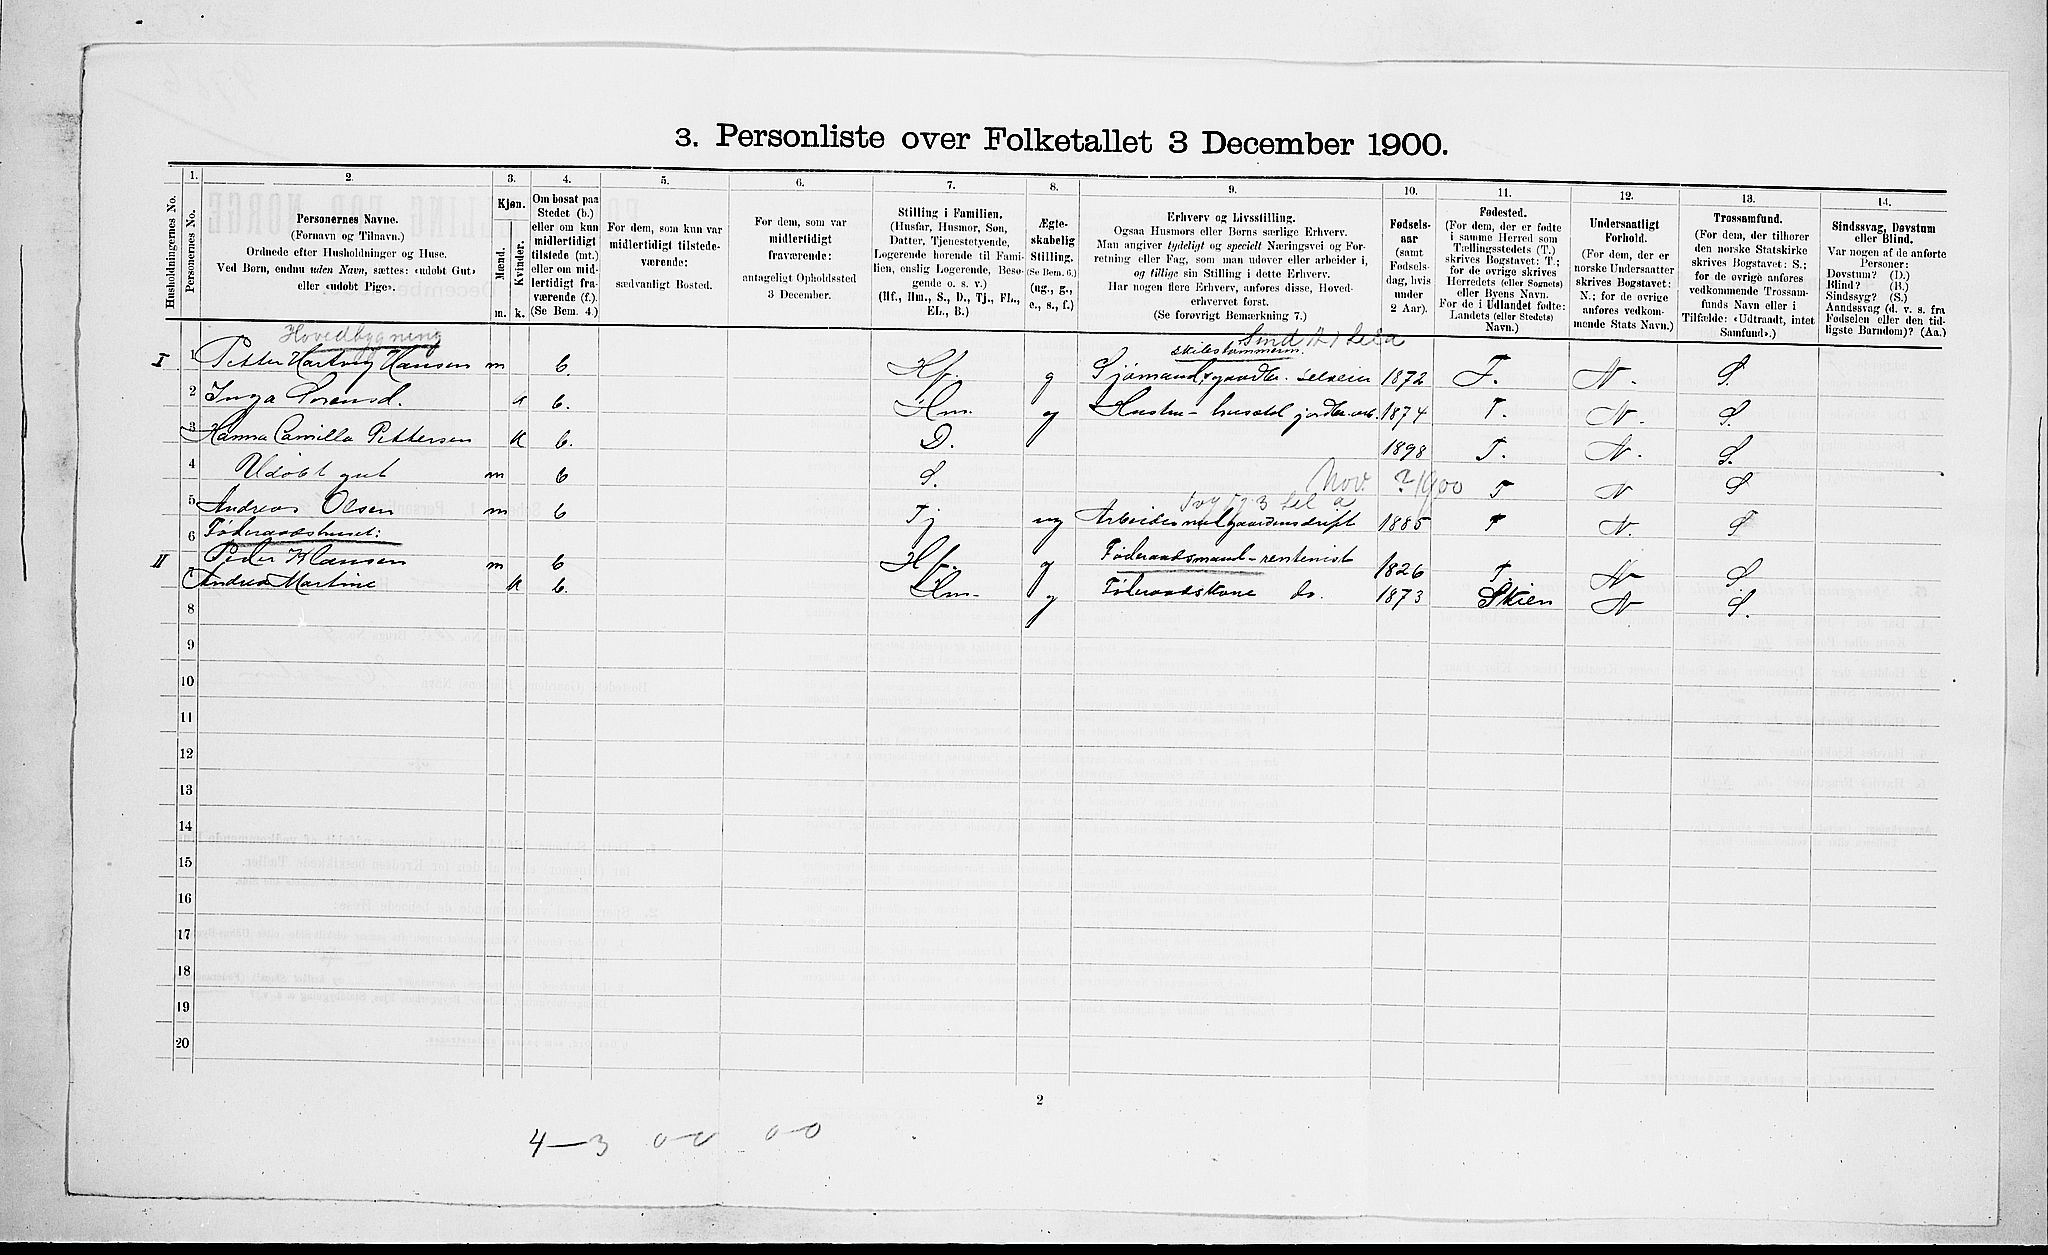 3. Personliste over Folketallet 3 December 1900.
Husholdningernes No.
1. Personernes No.
2. Personernes Navne.
(Fornavn og Tilnavn.)
Ordnede efter Husholdninger og Huse.
Ved Børn, endnu uden Navn, sættes: «udøbt Gut»
eller «udøbt Pige».
3. Kjøn.
Mænd. Kvinder.
m. k.
4. Om bosat paa
Stedet (b.)
eller om kun
midlertidigt
tilstede (mt.)
eller om mid-
lertidigt fra-
værende (f.).
(Se Bem. 4.)
5. For dem, som kun var
midlertidigt tilstede-
værende:
sædvanligt Bosted.
6. For dem, som var
midlertidigt
fraværende:
antageligt Opholdssted
3 December.
7. Stilling i Familien.
(Husfar, Husmor, Søn,
Datter, Tjenestetyende,
Logerende hørende til Fami-
lien, enslig Logerende, Besø-
gende o. s. v.)
(Hf., Hm., S., D., Tj., FL.,
EL., B.)
8. Ægte-
skabelig
Stilling.
(Se Bem. 6.)
(ug., g.,
e., s., f.)
9. Erhverv og Livsstilling.
Ogsaa Husmors eller Børns særlige Erhverv.
Man angiver tydeligt og specielt Næringsvei og For-
retning eller Fag, som man udøver eller arbeider i,
og tillige sin Stilling i dette Erhverv.
Har nogen flere Erhverv, anføres disse, Hoved-
erhvervet først.
(Se forøvrigt Bemærkning 7.)
10. Fødsels-
aar
(samt
Fødsels-
dag, hvis
under
2 Aar).
11. Fødested.
(For dem, der er fødte
i samme Herred som
Tællingsstedets (T.)
skrives Bogstavet: T.;
for de øvrige skrives
Herredets (eller Sognets)
eller Byens Navn.
For de i Udlandet fødte:
Landets (eller Stedets)
Navn.)
12. Undersaatligt
Forhold.
(For dem, der er
norske Undersaatter
skrives Bogstavet:
N.; for de øvrige
anføres vedkom-
mende Stats Navn.)
13. Trossamfund.
(For dem, der tilhører
den norske Statskirke
skrives Bogstavet: S.;
for de øvrige anføres
vedkommende Trossam-
funds Navn eller i
Tilfælde: «Udtraadt, intet
Samfund».)
14. Sindssvag, Døvstum
eller Blind.
Var nogen af de anførte
Personer:
Døvstum? (D.)
Blind? (B.)
Sindssyg? (S.)
Aandssvag (d. v. s. fra
Fødselen eller den tid-
ligste Barndom)? (Aa.)
Hovedbygning
I 1 Petter Hartvig Hansen m b. Hf. g Sjømand, gaardbr. selveier 1872 T. N. S.
2 Inga Sorensd. k b. Hm. g Hustru - husstel jordbr. arb. 1874 T. N. S.
3 Hanna Camilla Pettersen k b. D. 1898 T. N. S.
4 Udøbt gut m b S. Nov. ? 1900 T N S
5 Andreas Olsen m b Tj ug Arbeider ved gaardensdrift 1885 T N. S
6 Føderaadshuset:
II Peder Hansen m b Hf. g Føderaadsmand - rentenist 1826 T. N S.
7 Andrea Martine k b. Hm. g Føderaadskone do. 1873 Skien N. S.
8
9
10
11
12
13
14
15
16
17
18
19
20
2
4-3 0-0 0-0